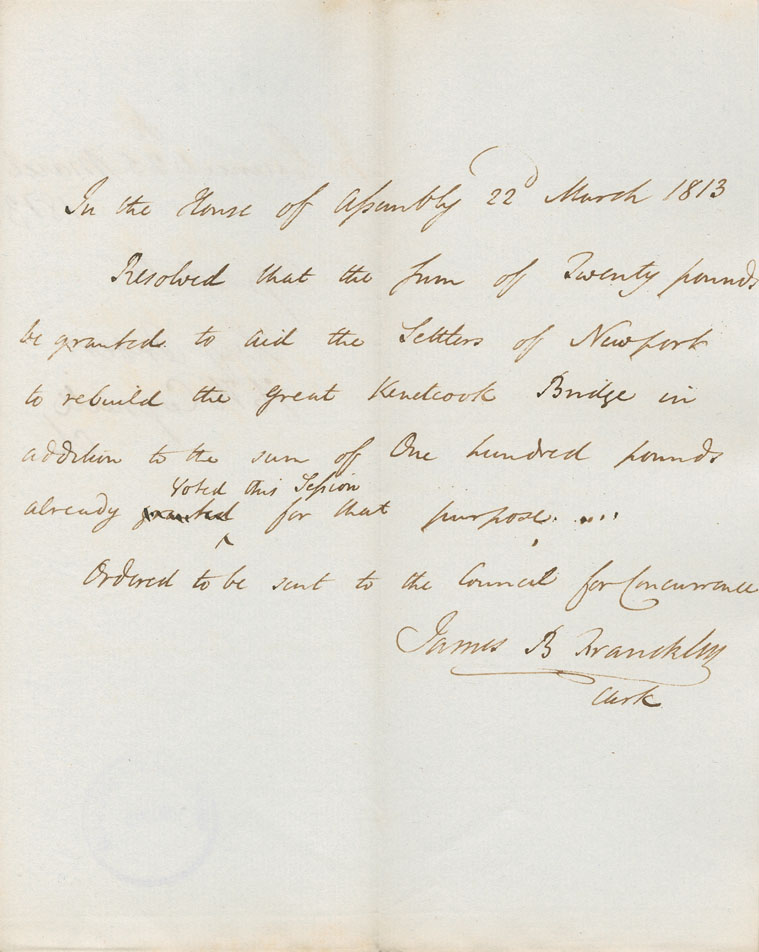 In the House of Assembly 22d March 1813
Resolved that the sum of Twenty pounds
be granted to aid the Settlers of Newport
to rebuild the great Kenetcook Bridge in
addition to the sum of One hundred pounds
voted this Session
already granted for that purpose ....
Ordered to be sent to the Council for Concurrence
James B Francklin
Clerk